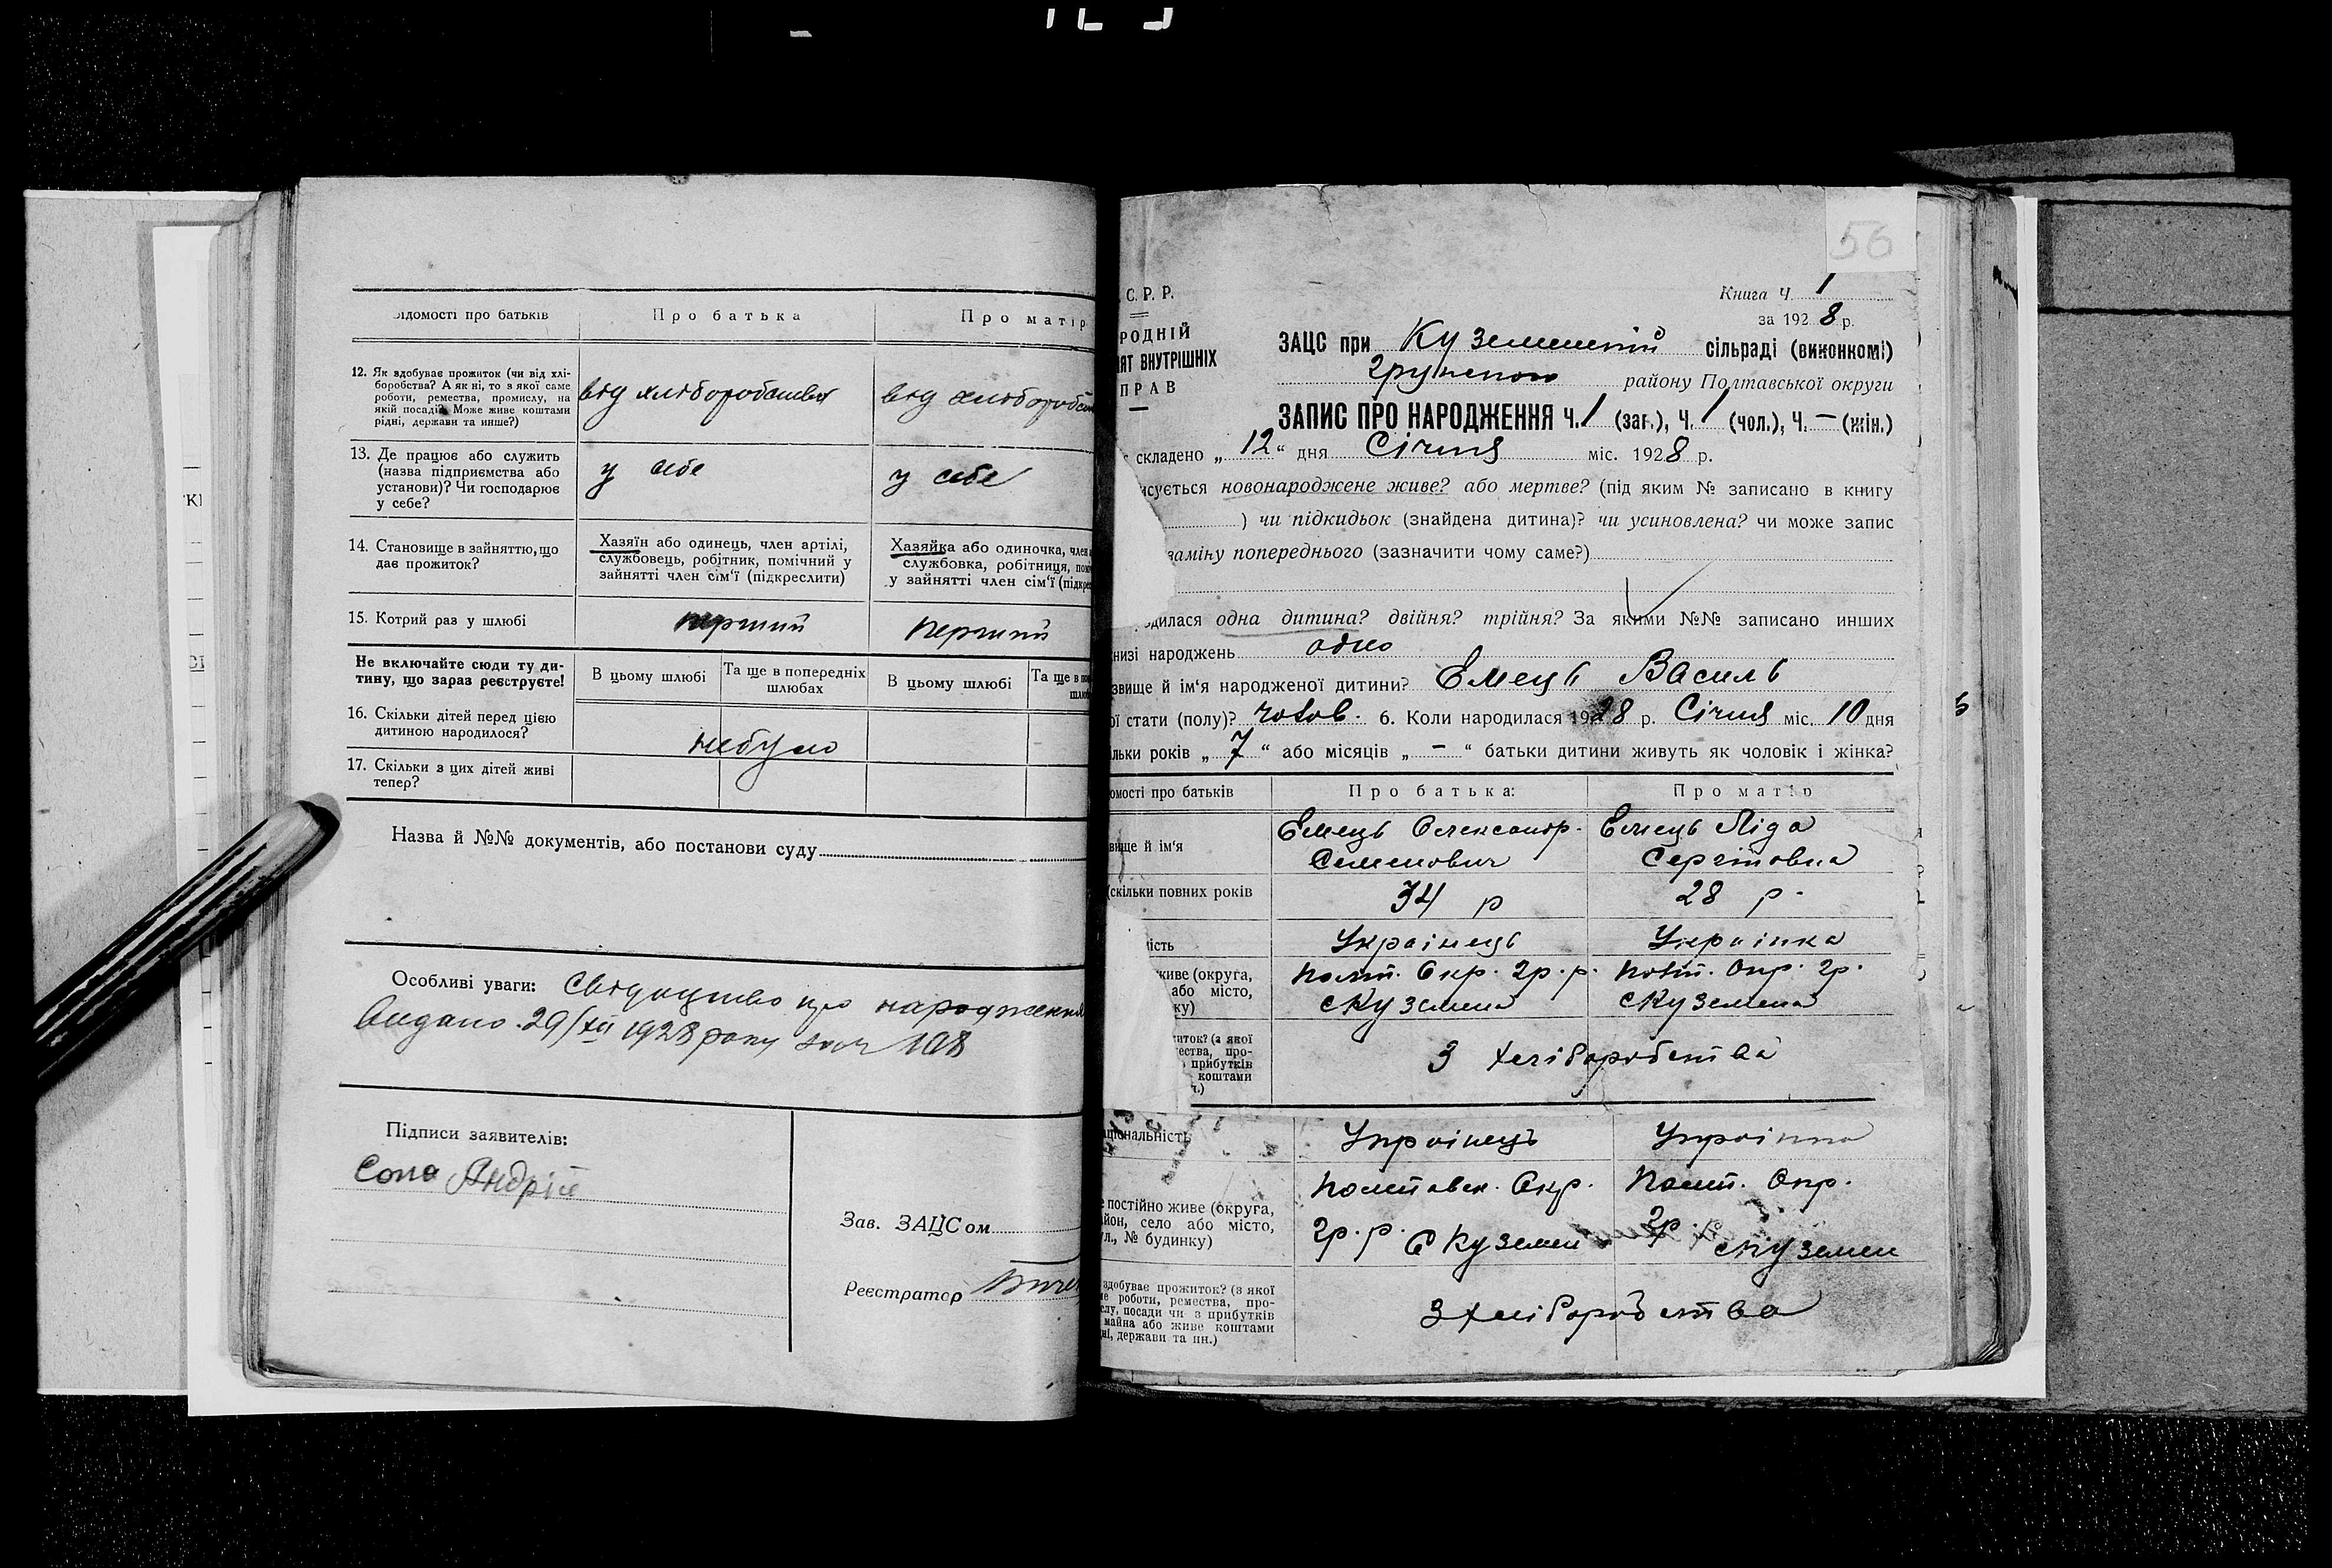 Відомості про батьків
Про батька
Про матір
12. Як здобуває прожиток (чи від хлі-
боробства? А як ні, то з якої саме
роботи, ремества, промислу, на
якій посаді? Може живе коштами
рідні, держави та инше?)
від хліборобства
від хлібороб
13. Де працює або служить
(назва підприємства або
установи)? Чи господарює
у себе?
у себе
у себе
14. Становище в зайняттю, що
дає прожиток?
Хазяїн або одинець, член артілі,
службовець, робітник, помічний у
зайнятті член сім'ї (підкреслити)
Хазяйка або одиночка, член
службовка, робітниця,
у зайнятті член сім'ї
15. Котрий раз у шлюбі
перший
перший
Не включайте сюди ту ди-
тину, що зараз реєструєте!
В цьому шлюбі
Та ще в попередніх
шлюбах
В цьому шлюбі
Та ще в
16. Скільки дітей перед цією
дитиною народилося?
небуло
17. Скільки з цих дітей живі
тепер?
Назва й №№ документів, або постанови суду
Особливі уваги: Свідоцтво про народження
Видано 29/XII 1928 року 108
Підписи заявителів:
Андрій
Зав. ЗАЦСом
Реєстратор
56
С.Р.Р.
РОДНІЙ
ЯТ ВНУТРІШНІХ
ПРАВ
Книга Ч. 1
за 1928 р.
ЗАЦС при Куземенській сільраді (виконкомі)
Грунського району Полтавської округи
ЗАПИС ПРО НАРОДЖЕННЯ Ч. 1 (заг.), Ч. 1 (чол.), Ч. — (жін.)
складено „12“ дня Січня міс. 1928 р.
исується новонароджене живе? або мертве? (під яким № записано в книгу
) чи підкидьок (знайдена дитина)? чи усиновлена? чи може запис
заміну попереднього (зазначити чому саме?)
дилася одна дитина? двійня? трійня? За якими №№ записано инших
низі народжень одно
звище й ім'я народженої дитини? Емець Василь
ої стати (полу)? чолов. 6. Коли народилася 1928 р. Січня міс. 10 дня
5
льки років „7“ або місяців „—“ батьки дитини живуть як чоловік і жінка?
омості про батьків
Про батька:
Про матір
вище й ім'я
Емець Олександр.
Семенович
Емець Ліда
Сергіївна
(скільки повних років
34 р
28 р.
ість
Українець
Українка
живе (округа,
або місто,
ку)
Полт. Окр. Гр. р.
с Куземена
Полт. Окр. Гр.
с Куземена
иток? (з якої
ества, про-
прибутків
коштами
н.)
З хліборобства
аціональність
Українець
Українка
е постійно живе (округа,
йон, село або місто,
ул., № будинку)
Полтавск. Окр.
Гр. р. с Куземен
Полт. Окр.
Гр. р.
с Куземен
здобуває прожиток? (з якої
ме роботи, ремества, про-
слу, посади чи з прибутків
майна або живе коштами
дні, держави та ин.)
З хліборобства